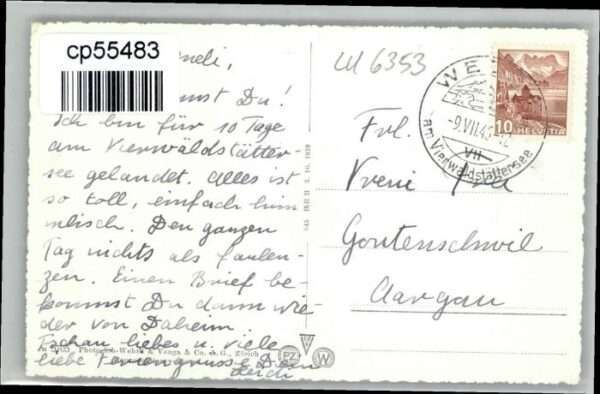 cp55483
neli,
mst Du!
Ich bin für 10 Tage
am Vierwaldstätter
see gelandet. Alles ist
so toll, einfach him
mlisch. Den ganzen
Tag nichts als faulen-
zen. Einen Brief be-
kommst Du dann wie
der von Daheim
Tschau liebes u. viele
liebe Feriengrüsse
LU 6353
WE
-9.VII.4
VII
am Vierwaldstättersee
10 HELVETIA
Frl.
Vreni
Gontenschwil
Aargau
Photo & Co. A. G., Zürich
PZ
W